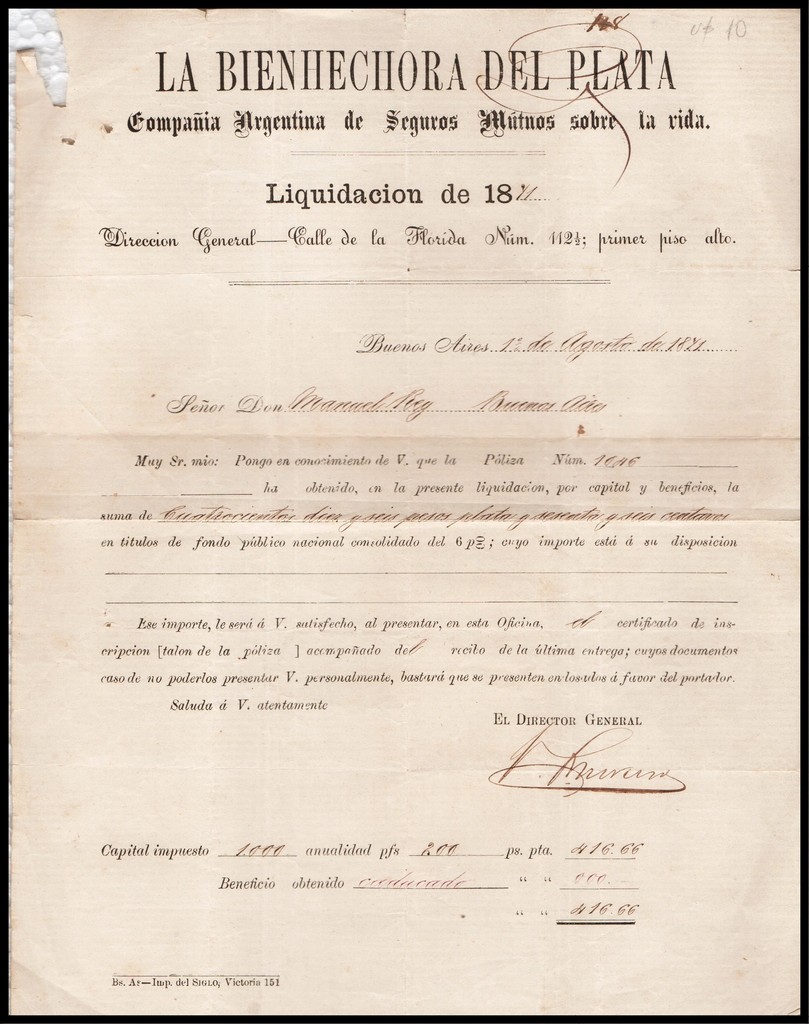 118
10
LA BIENHECHORA DEL PLATA
Compañia Argentina de Seguros Mútuos sobre la vida.
Liquidacion de 1871
Direccion General—Calle de la Florida Núm. 112½; primer piso alto.
Buenos Aires 1º de Agosto de 1871
Señor Don Manuel Rey Buenos Aires
Muy Sr. mio: Pongo en conocimiento de V. que la Póliza Núm. 1046
ha obtenido, en la presente liquidacion, por capital y beneficios, la
suma de Cuatrocientos diez y seis pesos plata y sesenta y seis centavos
en titulos de fondo público nacional consolidado del 6 p%; cuyo importe está á su disposicion
Ese importe, le será á V. satisfecho, al presentar, en esta Oficina, el certificado de ins-
cripcion [talon de la póliza ] acompañado del recibo de la última entrega; cuyos documentos
caso de no poderlos presentar V. personalmente, bastará que se presenten endosados á favor del portador.
Saluda á V. atentamente
EL DIRECTOR GENERAL
Capital impuesto 1.000 anualidad pfs 200 ps. pta. 416.66
Beneficio obtenido caducado " " 000.—
" " 416.66
Bs. Ar—Imp. del SIGLO, Victoria 151